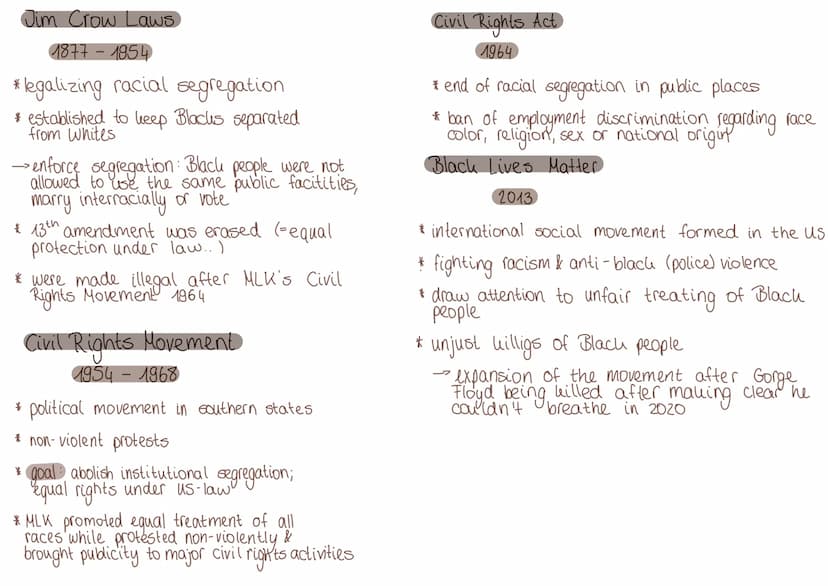 Jim Crow Laws
1877 - 1954
* legalizing racial segregation
* established to keep Blacks separated
from Whites
→ enforce segregation: Black people were not
allowed to use the same public facitities,
marry interracially or vote
* 13th amendment was erased (=equal
protection under law...)
* were made illegal after MLK's Civil
Rights Movement 1964
Civil Rights Movement
1954 - 1968
* political movement in southern states
* non-violent protests
* goal: abolish institutional segregation;
equal rights under US-law
* MLK promoted equal treatment of all
races while protested non-violently &
brought publicity to major civil rights activities
Civil Rights Act
1964
* end of racial segregation in public places
* ban of employment discrimination regarding race
color, religion, sex or national origin
Black Lives Matter
2013
* international social movement formed in the US
* fighting racism & anti-black (police) violence
* draw attention to unfair treating of Black
people
* unjust killigs of Black people
→ expansion of the movement after Gorge
Floyd being killed after making clear he
couldn't breathe in 2020